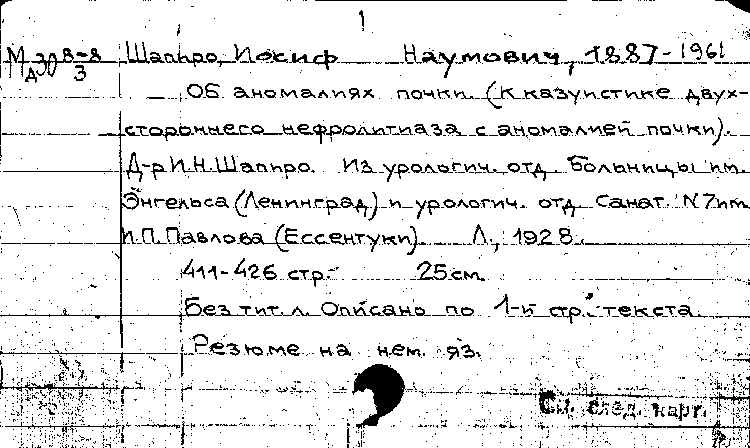 1
Шапиро, Иосиф Наумович, 1887-1961
8-8
3
Об аномалиях почки. (К казуистике двух-
стороннего нефролитиаза с аномалией почки).
Д-р И.Н.Шапиро. Из урологич. отд. Больницы им.
Энгельса (Ленинград) и урологич. отд. Санат. N7 им.
И.П.Павлова (Ессентуки). Л., 1928.
411-426 стр. 25 см.
Без тит. л. Описано по 1-й стр. текста.
Резюме на нем. яз.
См. след. карт.